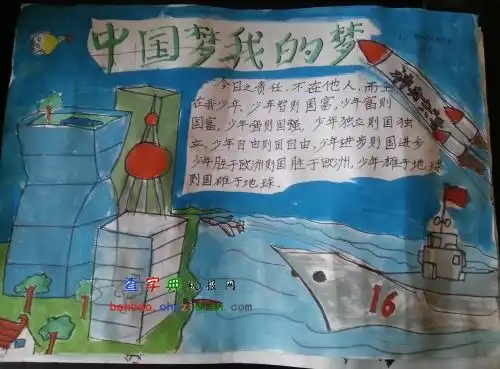 中国梦我的梦
今日之责任，不在他人，而全
在我少年．少年智则国富，少年富则
国富，少年强则国强，少年独立则国独
立，少年自由则国自由，少年进步则国进步
少年胜于欧洲则国胜于欧洲，少年雄于地球
则国雄于地球．
16
查字典板报网
banbao.chazidian.com